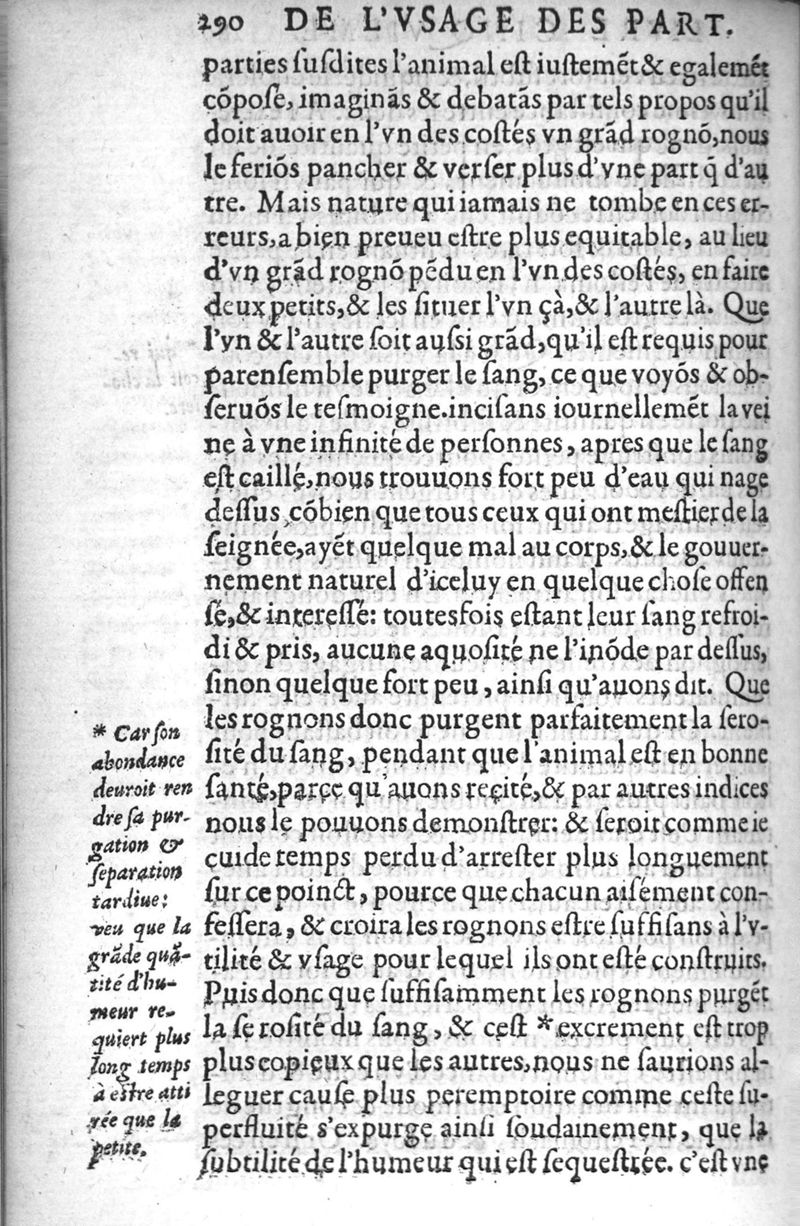 290 DE L'VSAGE DES PART.
parties ſuſdites l'animal eſt iuſtemẽt & egalemẽt
cõpoſe, imaginãs & debatãs par tels propos qu'il
doit auoir en l'vn des coſtés vn grãd rognõ, nous
le feriõs pancher & verſer plus d'vne part q̃ d'au
tre. Mais nature qui iamais ne tombe en ces er-
reurs, a bien preueu eſtre plus equitable, au lieu
d'vn grãd rognõ pẽdu en l'vn des coſtés, en faire
deux petits, & les ſituer l'vn çà, & l'autre là. Que
l'vn & l'autre ſoit auſsi grãd, qu'il eſt requis pour
parenſemble purger le ſang, ce que voyõs & ob-
ſeruõs le teſmoigne. inciſans iournellemẽt la vei
ne à vne infinité de perſonnes, apres que le ſang
eſt caillé, nous trouuons fort peu d'eau qui nage
deſſus, cõbien que tous ceux qui ont meſtier de la
ſeignée, ayẽt quelque mal au corps, & le gouuer-
nement naturel d'iceluy en quelque choſe offen
ſé, & intereſſé: toutesfois eſtant leur ſang refroi-
di & pris, aucune aquoſité ne l'inõde par deſſus,
ſinon quelque fort peu, ainſi qu'auons dit. Que
les rognons donc purgent parfaitement la ſero-
ſité du ſang, pendant que l'animal eſt en bonne
ſanté, parce qu'auons recité, & par autres indices
nous le pouuons demonſtrer: & ſeroit comme ie
cuide temps perdu d'arreſter plus longuement
ſur ce poinct, pource que chacun aiſément con-
feſſera, & croira les rognons eſtre ſuffiſans à l'v-
tilité & vſage pour lequel ils ont eſté conſtruits.
Puis donc que ſuffiſamment les rognons purgẽt
la ſe roſité du ſang, & ceſt *excrement eſt trop
plus copieux que les autres, nous ne ſaurions al-
leguer cauſe plus peremptoire comme ceſte ſu-
perfluité s'expurge ainſi ſoudainement, que la
ſubtilité de l'humeur qui eſt ſequeſtrée. c'eſt vne
* Car ſon
abondance
deuroit ren
dre ſa pur-
gation &
ſeparation
tardiue:
veu que la
grãde quã-
tité d'hu-
meur re-
quiert plus
long temps
à eſtre atti
rée que la
petite.